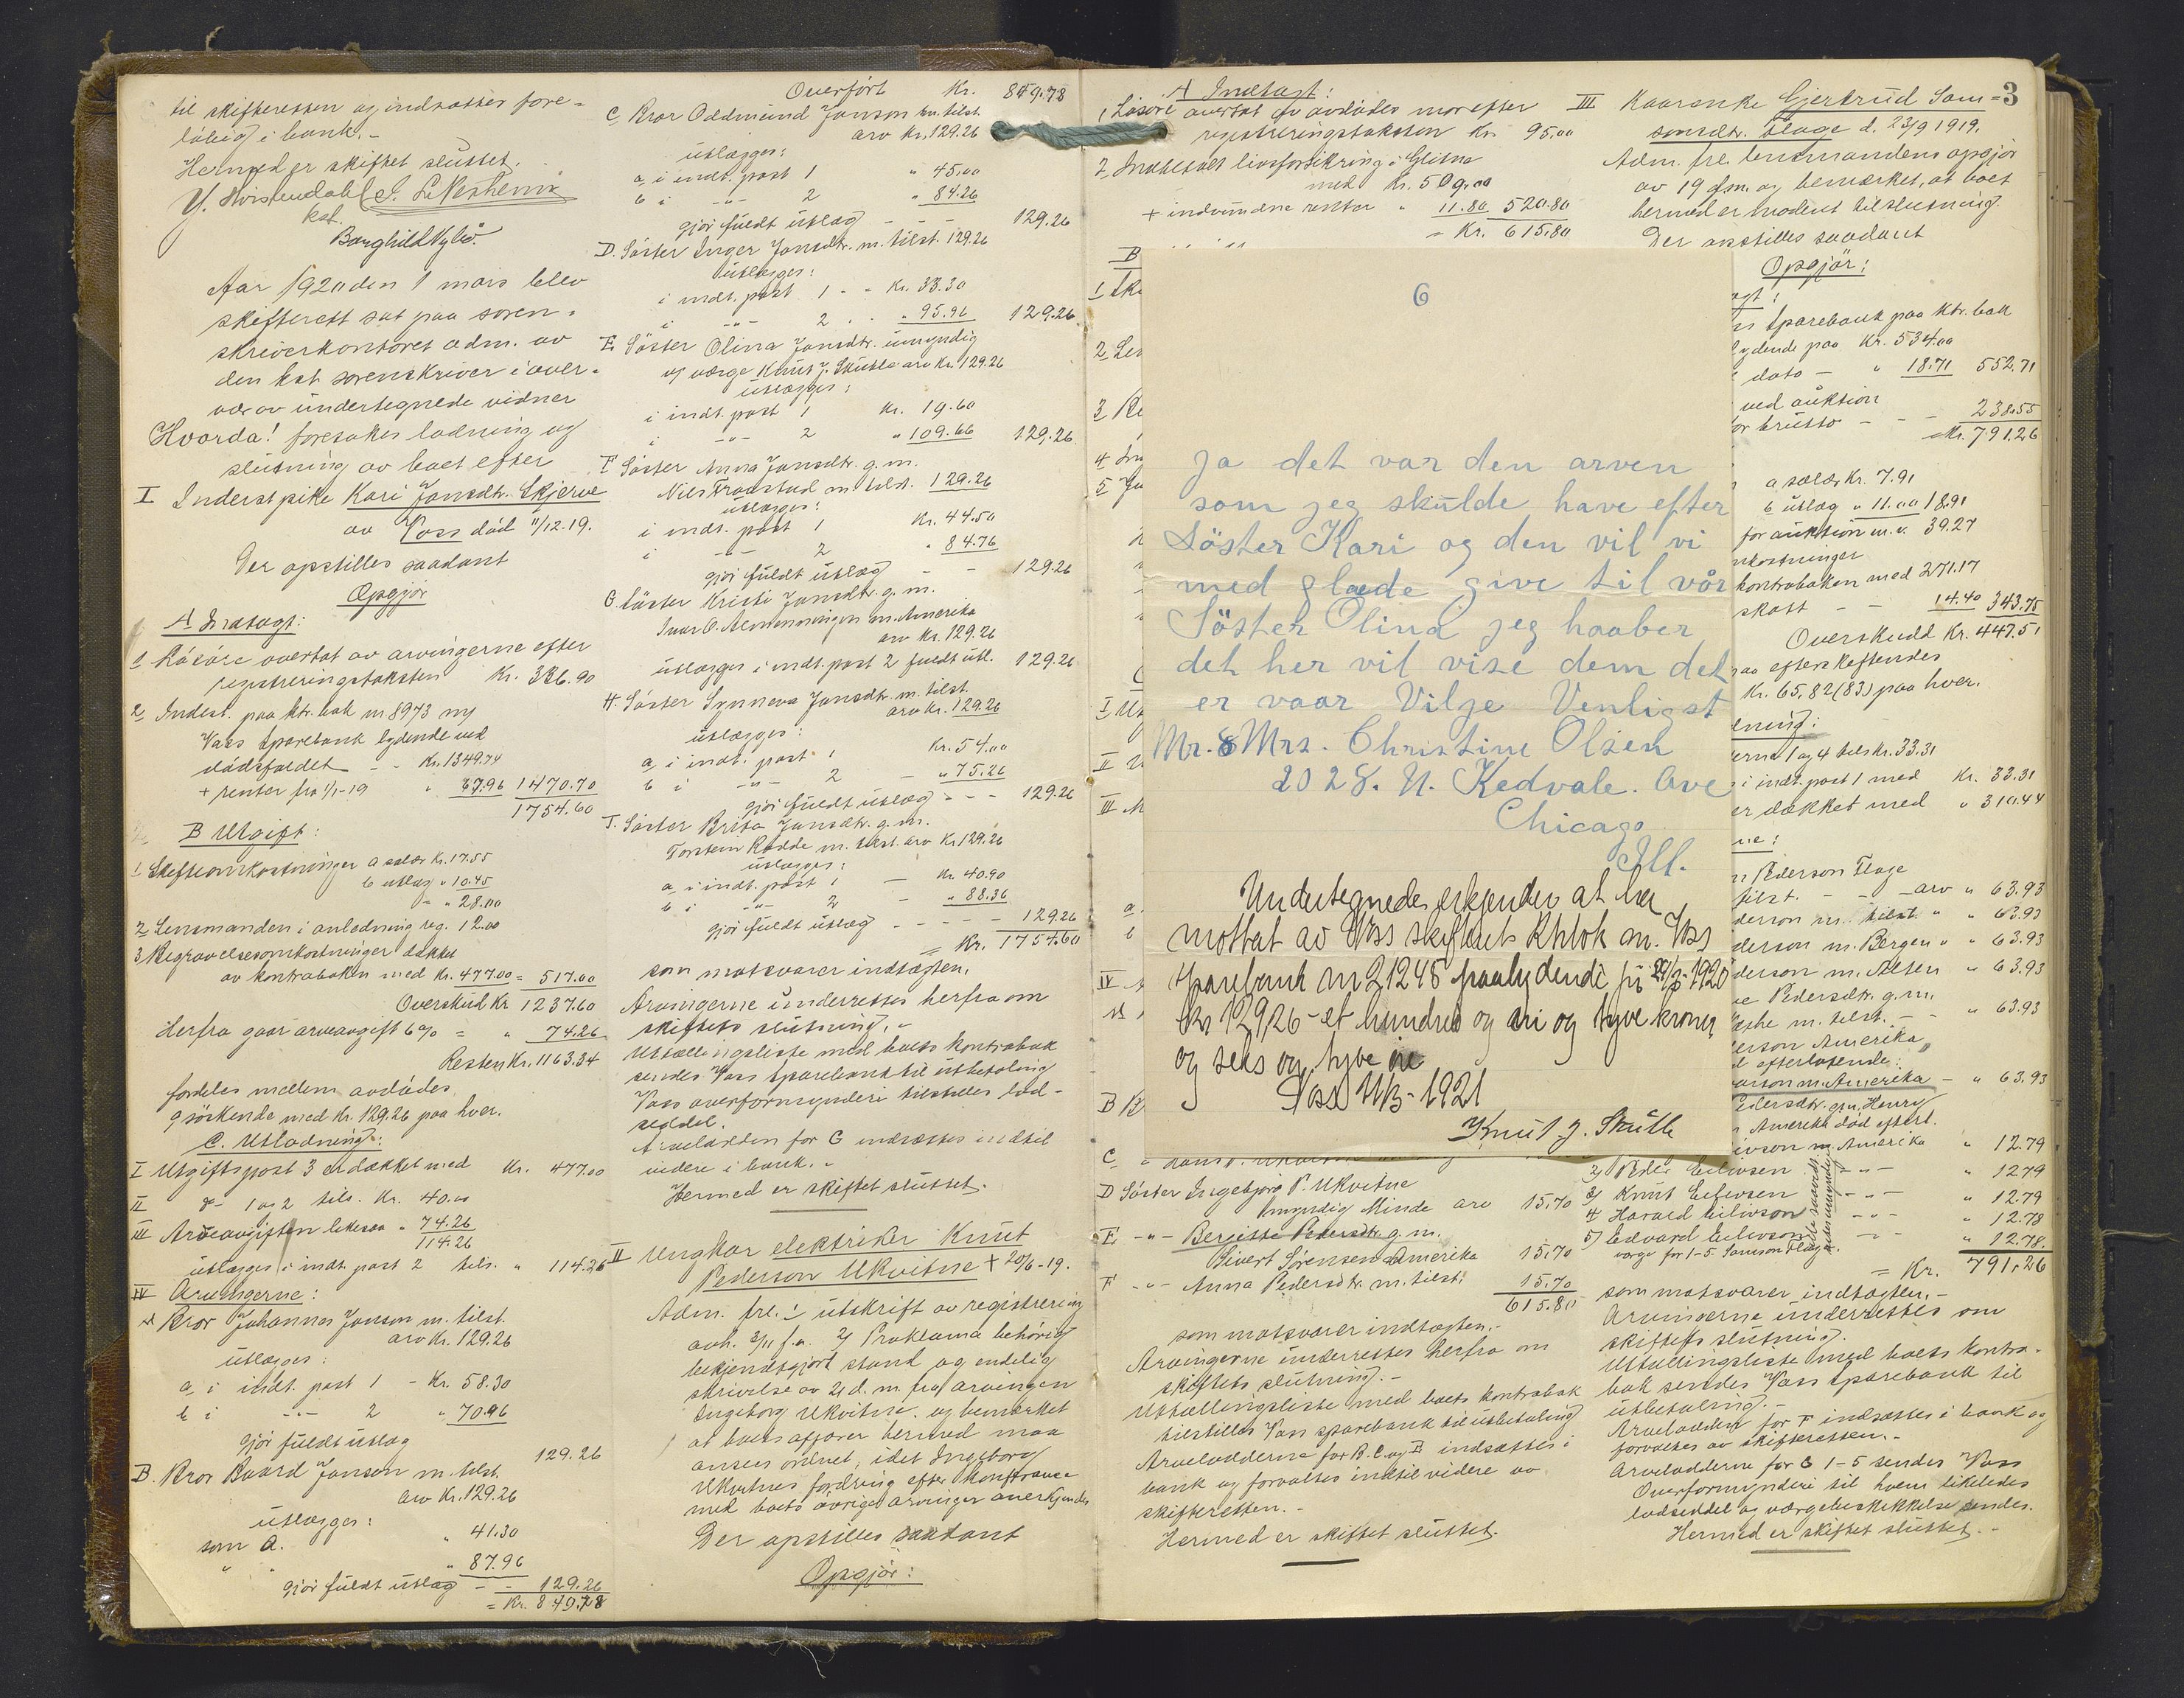 til skifteretten og indsættes fore=
løbig i bank.-
Hermed er skiftet sluttet.
Borghild Nybø.
Aar 1920 den 1 mars blev
skifterett sat paa soren=
skriverkontoret adm. av
den kst sorenskriver i over=
vær av undertegnede vidner
Hvorda! foretokes lodning og
slutning av boet efter
I Inderst pike Kari Jonsdtr. Skjerve
av Voss död 11/12.19.
Der opstilles saadant
Opgjör
A Indtægt:
1 Lösöre overtat av arvingerne efter
registreringstaksten Kr. 336.90
2 Indest. paa ktr. bok nr 8973 mg
Voss Sparebank lydende ved
dödsfaldet - - Kr. 1349.74
+ renter fra 1/1-19 " 67.96 1470.70
1754.60
B Utgift:
1 Skifteomkostninger a salær Kr. 17.55
b utlæg " 10.45
= " 28.00
2 Lensmanden i anledning reg. 12.00
3 Begravelsesomkostninger dækket
av kontraboken med Kr. 477.00 = 517.00
Overskud Kr 1237.60
Herfra gaar arveavgift 6% = " 74.26
Resten Kr. 1163.34
fordeles mellem avdödes
9 söskende med Kr. 129.26 paa hver.
C. Utlodning:
I Utgiftspost 3 er dækket med Kr. 477.00
II - 1 og 2 tils. Kr. 40.00
III Arveavgiften likesaa " 74.26
114.26
utlægges i indt. post 2 tils. " 114.26
IV Arvingerne:
A Bror Johannes Jonson m. tilst.
arv Kr. 129.26
utlægges:
a i indt. post 1 - Kr. 58.30
b i -"- 2 " 70.96
gjör fuldt utlæg 129.26
B. Bror Baard Jonson m. tilst.
arv Kr. 129.26
utlægges:
som A. " 41.30
" " 87.96
gjör fuldt utlæg - - 129.26
= Kr. 849.78
Overfört Kr. 849.78
C Bror Oddmund Jonson m. tilst.
arv Kr. 129.26
utlægges:
a i indt. post 1 " 45.00
b i -"- 2 " 84.26
gjör fuldt utlæg - - - 129.26
D. Söster Inger Jonsdtr. m. tilst. 129.26
utlægges:
i indt. post 1 - " Kr. 33.30
i -"- 2 . . " 95.96 129.26
E Söster Olina Jonsdtr. umyndig
og værge Knut J. Skutle arv Kr. 129.26
utlægges:
i indt. post 1 Kr. 19.60
i -"- 2 " 109.66 129.26
F Söster Anna Jonsdtr. g. m.
Nils Traastad m. tilst. 129.26
utlægges:
i indt. post 1 Kr. 44.50
i -"- 2 " 84.76
gjör fuldt utlæg - - 129.26
G. Söster Kristi Jonsdtr. g. m.
m. Amerika
arv Kr. 129.26
utlægges i indt. post 2 fuldt utl. 129.26
H. Söster Synneva Jonsdtr. m. tilst.
arv Kr. 129.26
utlægges:
a i indt. post 1 Kr. 54.00
b i -"- 2 - " 75.26
gjör fuldt utlæg - - - 129.26
J. Söster Brita Jonsdtr. g. m.
Torstein Rødde m. tilst. arv Kr. 129.26
utlægges:
a i indt. post 1 - Kr 40.90
b i -"- 2 - " 88.36
gjör fuldt utlæg - - - - 129.26
= Kr. 1754.60
som motsvarer indtægten.
Arvingerne underrettes herfra om
skiftets slutning.-
Utstællingsliste med boets kontrabok
sendes Voss Sparebank til utbetaling
Voss overformynderi tilstilles lod-
seddel.
Arvelodden for G indsættes indtil
videre i bank.-
Hermed er skiftet sluttet.
II Ungkar elektriker Knut
Pederson Ukvitne + 20/6-19.
Adm. fre. 1/ utskrift av registrering
avh. 3/11 f.a. 2/ Proklama behörig
bekjendtgjort stand og endelig
skrivelse av 2/ d. m. fra arvingen
Ingeborg Ukvitne. og bemærket
at boets affærer hermed maa
ansees ordnet, idet Ingeborg
Ukvitnes fordring efter konferance
med boets övrige arvinger anerkjendes
Der opstilles saadant
Opgjör:
A Indtægt:
1 Lösöre overtat av avdödes mor efter
registreringstaksten Kr. 95.00
2, Indbetalt livsforsikring i Glitne
med Kr. 509.00
+ indvundne renter " 11.80 520.80
= Kr. 615.80
B
1 Sk
2 Len
3 Be
4
5
C
I Ut
II
III
a.
b
IV
B
C
6
Ja det var den arven
som jeg skulde have efter
Söster Kari og den vil vi
med glæde give til vår
Söster Olina jeg haaber
det her vil vise dem det
er vaar Vilje Venligst
Mr. & Mrs. Christine Olsen
2028. N. Kedvale. Ave
Chicago
Ill.
Undertegnede erkjender at ha
mottat av Voss skifteret Ktrbok m. Voss
Sparebank nr 21248 paalydende pr 29/3-1920
Kr 129,26 - et hundred og ni og tyve kroner
og seks og tyve øre
Voss 11/3-1921
Knut J. Skutle
D Söster Ingebjörg P. Ukvitne
umyndig Minde arv 15.70
E -"- Bergitte Pedersdtr. g. m.
Sivert Sørensen Amerika 15.70
F -"- Anna Pedersdtr. m. tilst. 15.70
615.80
som motsvarer indtægten.-
Arvingerne underrettes herfra om
skiftets slutning.-
Utstællingsliste med boets kontrabok
tilstilles Voss sparebank til utbetaling
Arveloddene for B. C. og E indsættes i
bank og forvaltes indtil videre av
skifteretten.-
Hermed er skiftet sluttet.
3
III Kaarenke Gjertrud Sam=
sonsdtr. Flage d. 23/9 1919.
Adm. fre. lensmandens opgjör
av 19 f.m. og bemærket, at boet
hermed er modent til slutning.
Der opstilles saadant
Opgjör:
Sparebank paa ktr. bok
lydende paa Kr. 534.00
dato - " 18.71 552.71
ved auktion
brutto - - 238.55
= Kr. 791.26
a salær Kr. 7.91
b utlæg " 11.00 18.91
for auktion m. v. 39.27
omkostninger
kontraboken med 271.17
skatt - - 14.40 343.75
Overskudd Kr. 447.51
paa efterskeftendes
Kr. 65,82 (83) paa hver.
1 og 4 tils Kr. 33.31
i indt. post 1 med Kr. 33.31
er dækket med " 310.44
Pederson Flage
tilst. - - - arv " 63.93
derson m. tilst " " 63.93
derson m. Bergen " " 63.93
derson m. " 63.93
Pedersdtr. g. m.
m. tilst. - - " 63.93
erson Amerika
efterlatende:
m. Amerika - " 63.93
Pedersdtr. g. m. Henry
Amerika död efterl.
m Amerika " 12.79
2/ Peder Eilivsen -"- " 12.79
3/ Knut Eilivsen -"- " 12.79
4 Havard Eilivson -"- " 12.78
5/ Edvard Eilivson -"- " 12.78.
værge for 1-5 Samson Flage
= Kr. 791,26
som motsvarer indtægten.-
Arvingerne underrettes om
skiftets slutning.
Utstællingsliste med boets kontra-
bok sendes Voss Sparebank til
utbetaling.-
Arvelodden for F indsættes i bank og
forvaltes av skifteretten.-
Arveloddene for G 1-5 sendes Voss
Overformynderi til hvem likeledes
lodseddel og værgebeskikkelse sendes.
Hermed er skiftet sluttet.-